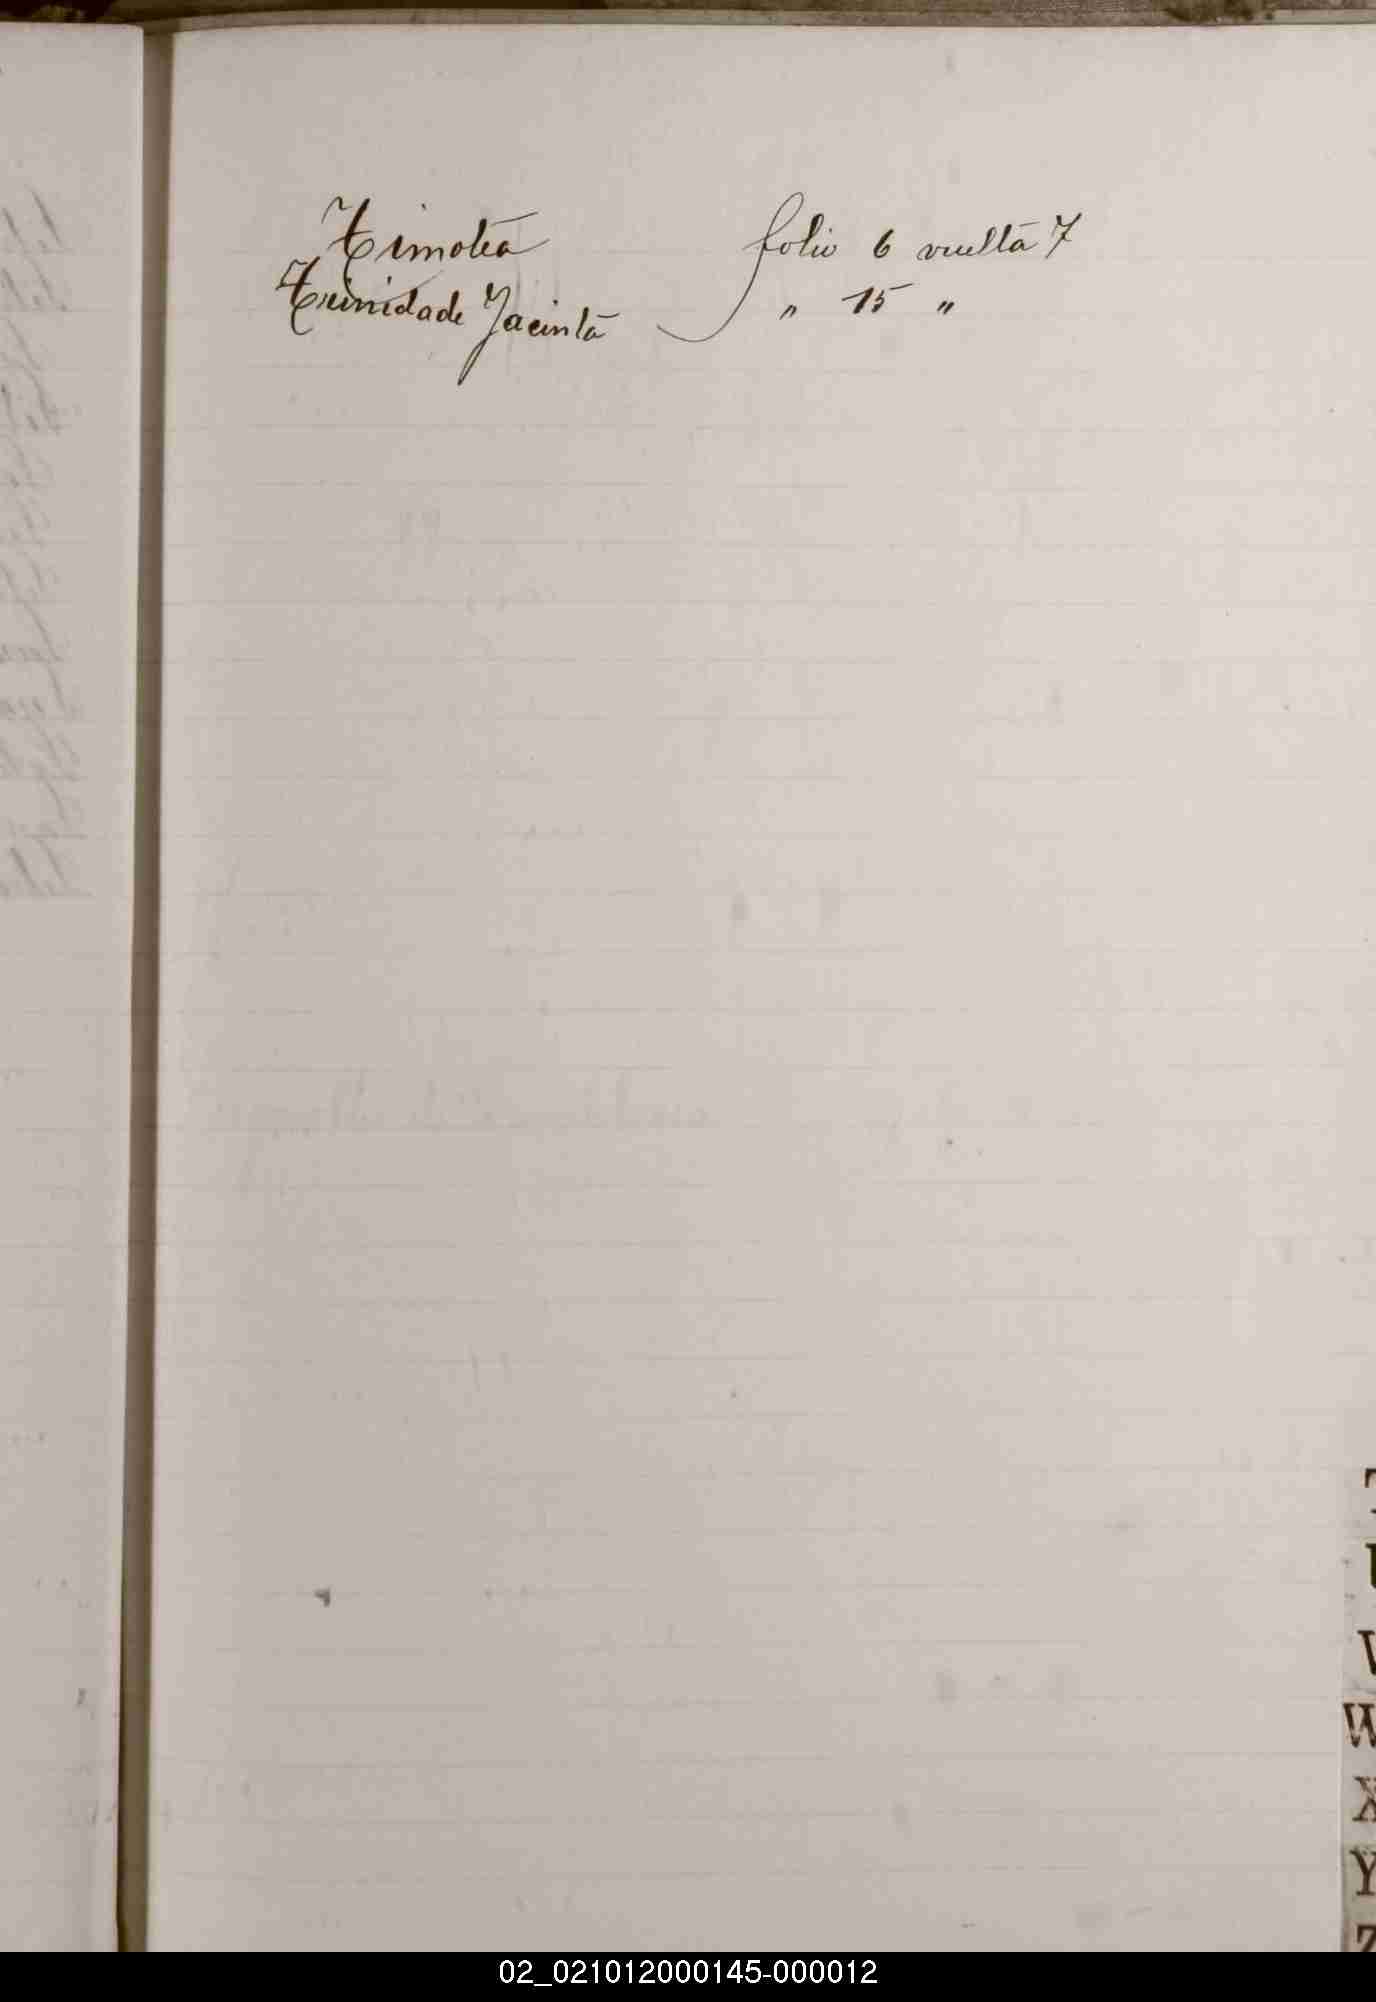 Timotea folio 6 vuelta 7
Trinidade Jacinta " 15 "
T
U
V
W
X
Y
Z
02_021012000145-000012